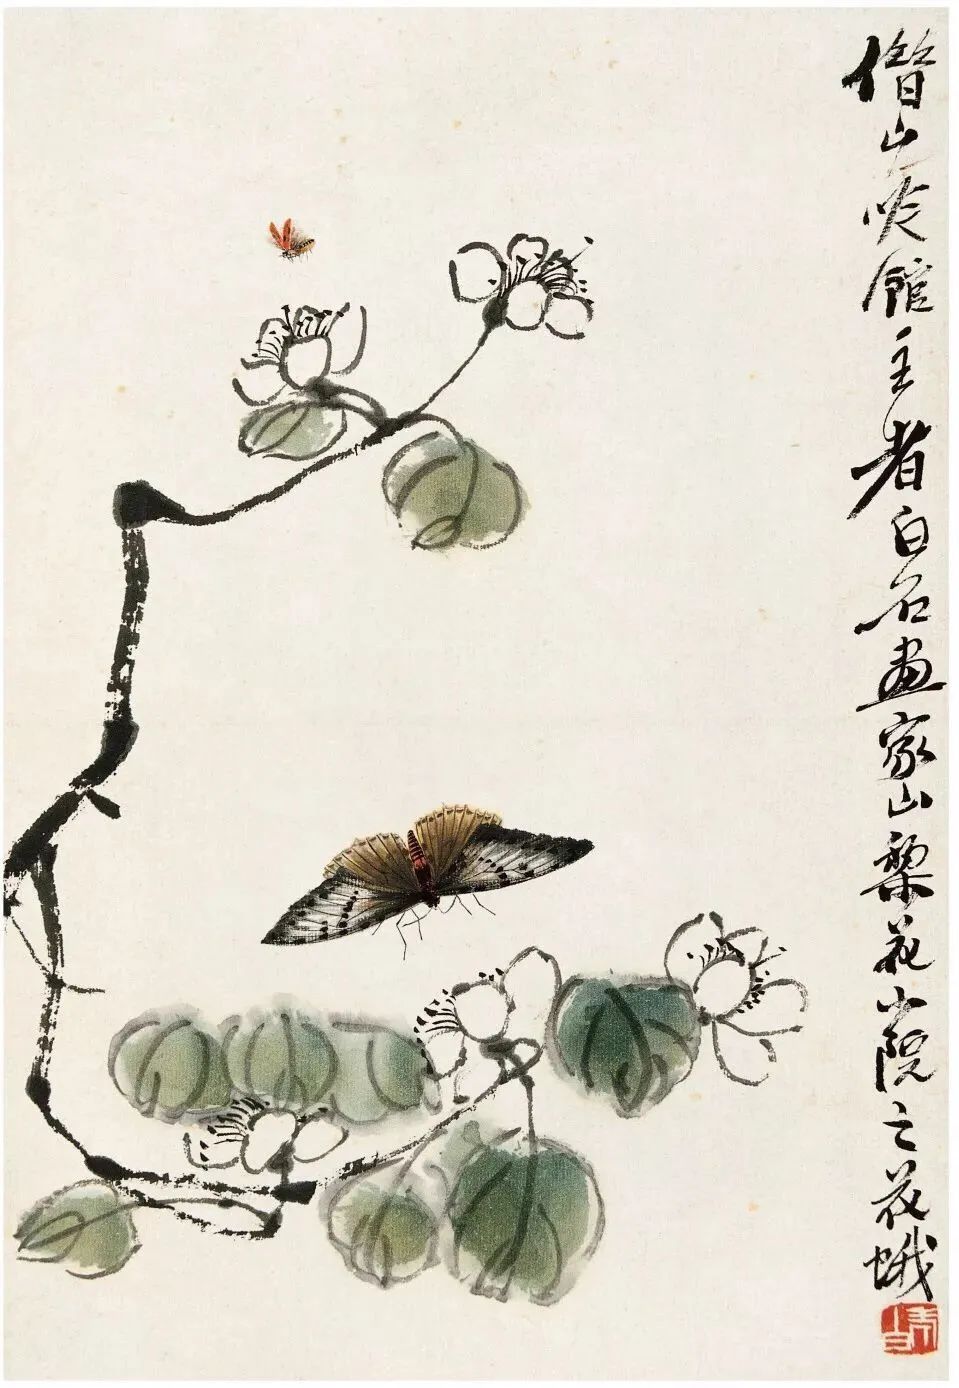 借山吟館主者白石畫家山梨花小院之花蛾